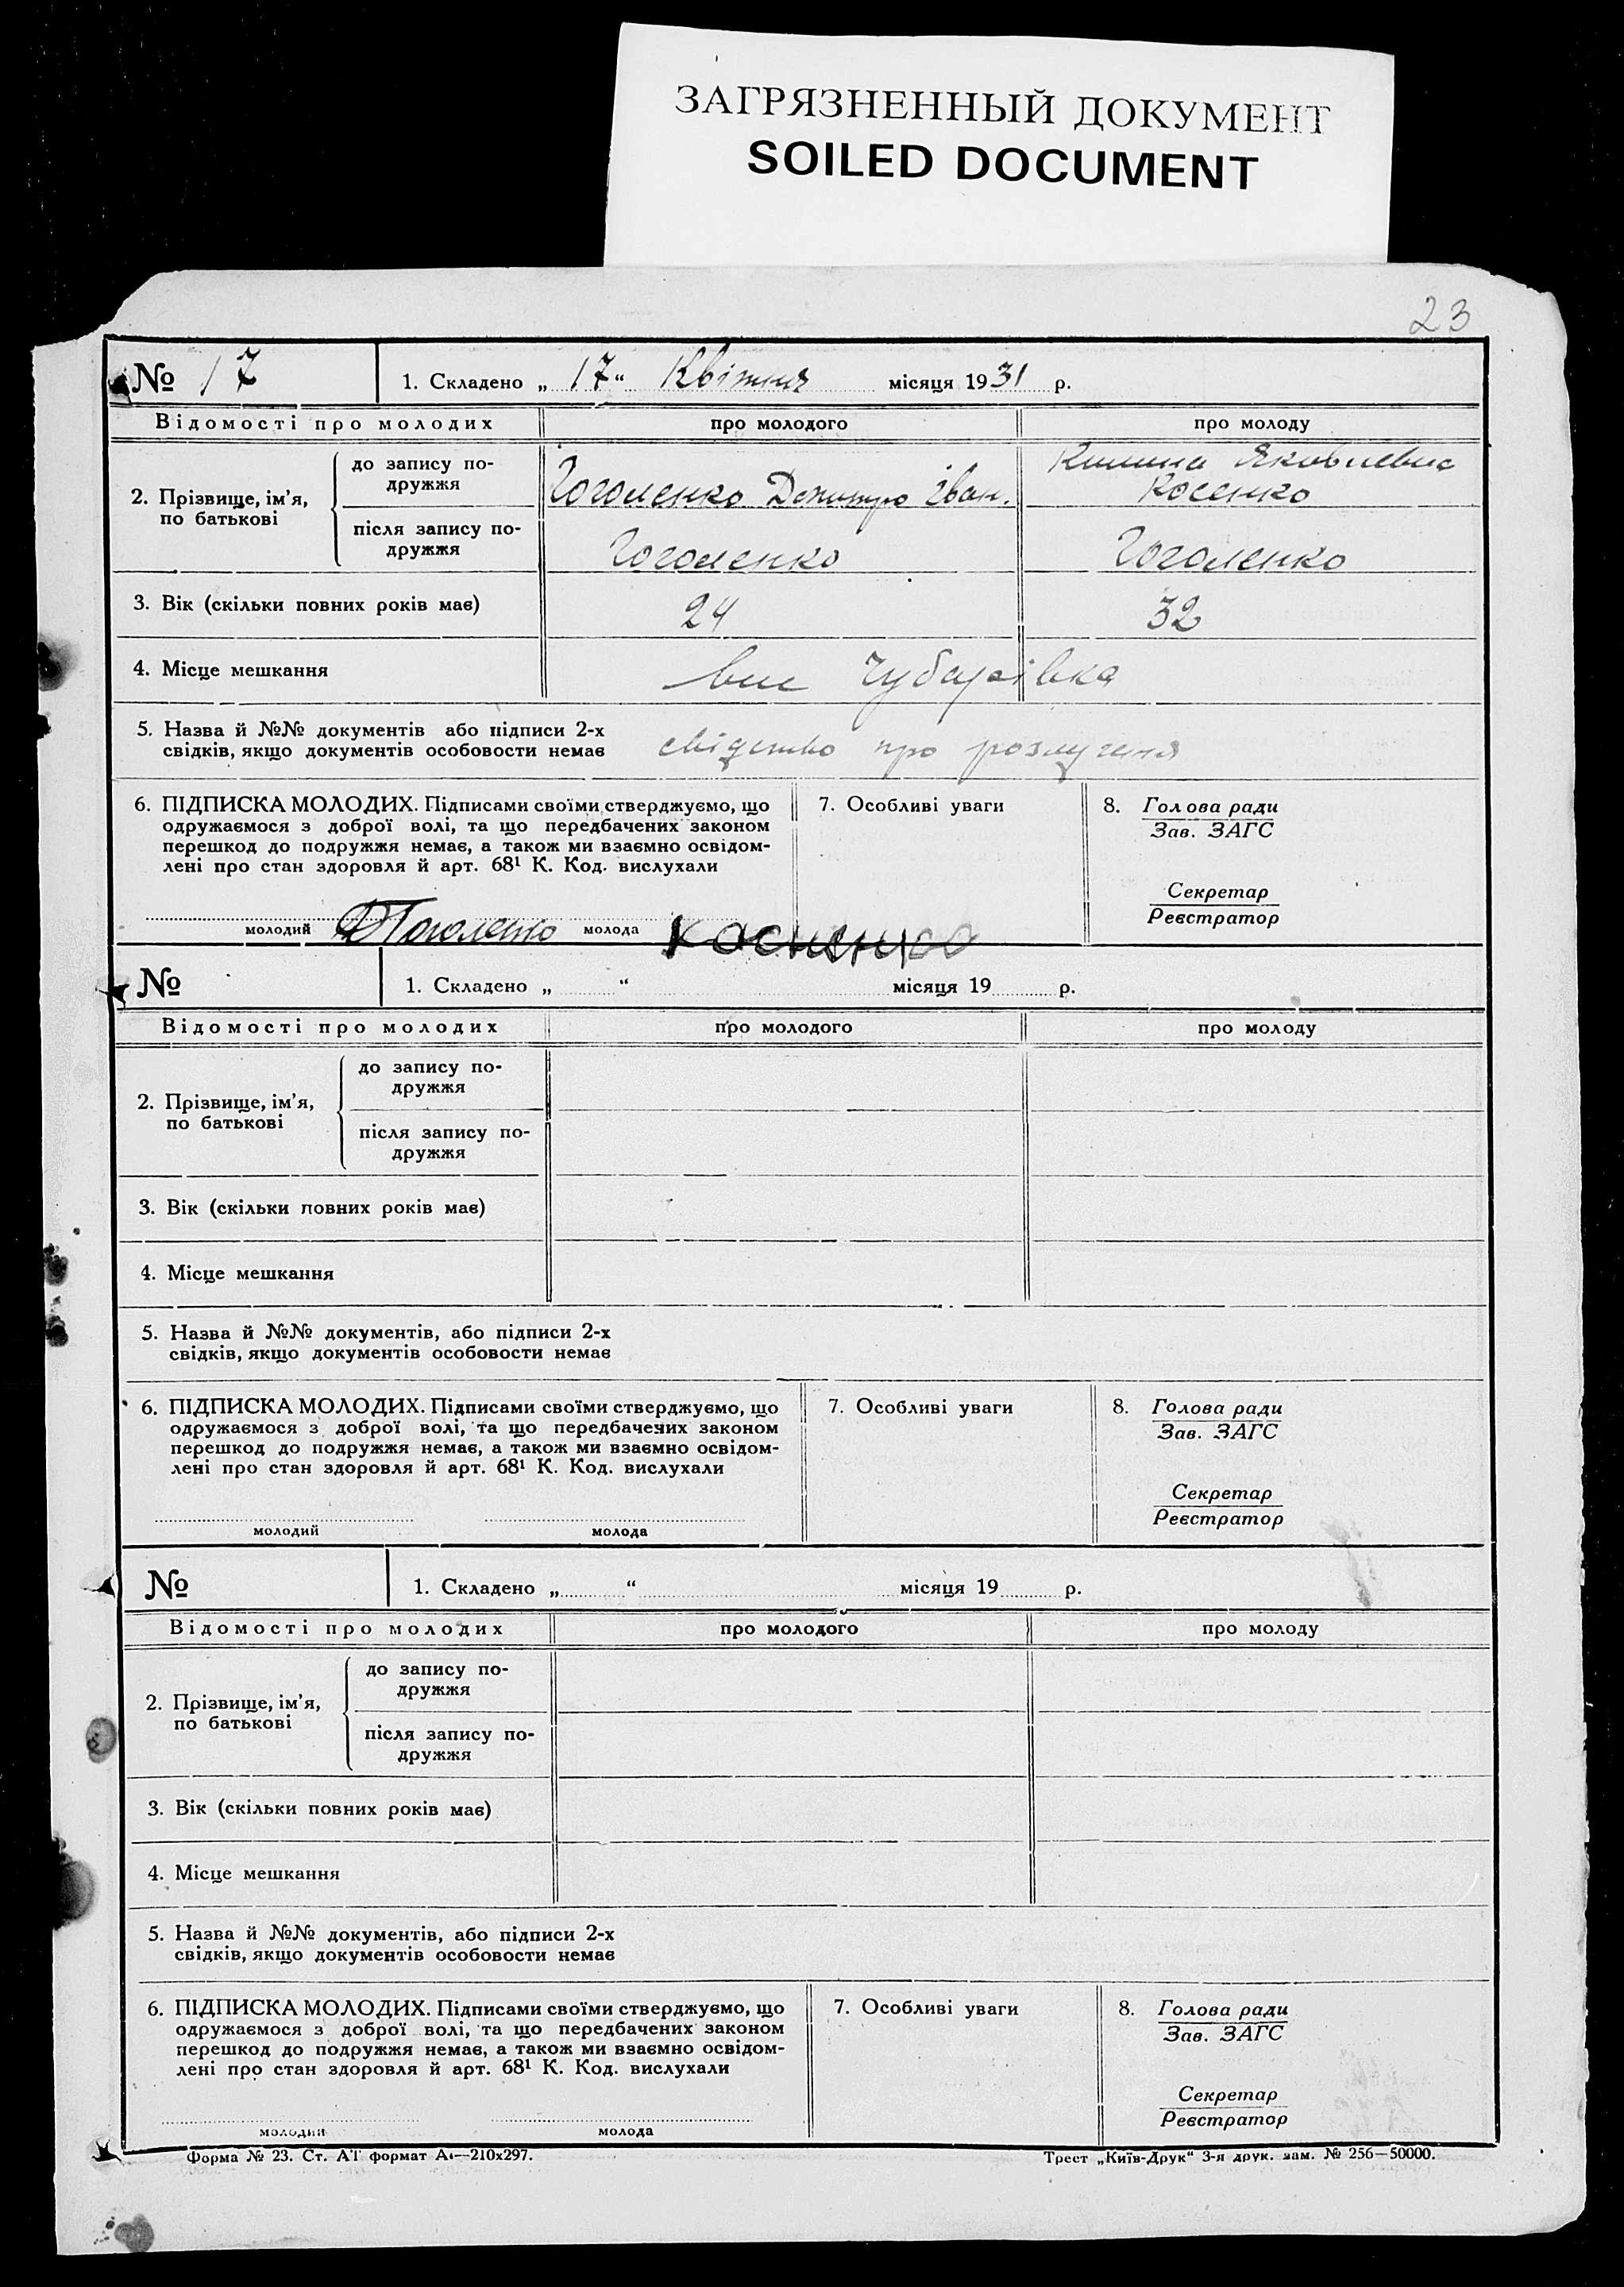 ЗАГРЯЗНЕННЫЙ ДОКУМЕНТ
SOILED DOCUMENT
23
№ 17 1. Складено „ 17 “ Квітня місяця 1931 р.
Відомості про молодих про молодого про молоду
2. Прізвище, ім'я, по батькові
до запису по-
дружжя
Гоголенко Дмитро Іван.
Килина Яковлевна
Косенко
після запису по-
дружжя
Гоголенко Гоголенко
3. Вік (скільки повних років має) 24 32
4. Місце мешкання Чубарівка
5. Назва й №№ документів або підписи 2-х
свідків, якщо документів особовости немає
про розлучення
6. ПІДПИСКА МОЛОДИХ. Підписами своїми стверджуємо, що
одружаємося з доброї волі, та що передбачених законом
перешкод до подружжя немає, а також ми взаємно освідом-
лені про стан здоровля й арт. 68¹ К. Код. вислухали
молодий ДГоголенко молода
7. Особливі уваги
8. Голова ради
Зав. ЗАГС
Секретар
Реєстратор
№ 1. Складено „ “ місяця 19 р.
Відомості про молодих про молодого про молоду
2. Прізвище, ім'я,
по батькові
до запису по-
дружжя
після запису по-
дружжя
3. Вік (скільки повних років має)
4. Місце мешкання
5. Назва й №№ документів, або підписи 2-х
свідків, якщо документів особовости немає
6. ПІДПИСКА МОЛОДИХ. Підписами своїми стверджуємо, що
одружаємося з доброї волі, та що передбачених законом
перешкод до подружжя немає, а також ми взаємно освідом-
лені про стан здоровля й арт. 68¹ К. Код. вислухали
молодий молода
7. Особливі уваги
8. Голова ради
Зав. ЗАГС
Секретар
Реєстратор
№ 1. Складено „ “ місяця 19 р.
Відомості про молодих про молодого про молоду
2. Прізвище, ім'я,
по батькові
до запису по-
дружжя
після запису по-
дружжя
3. Вік (скільки повних років має)
4. Місце мешкання
5. Назва й №№ документів, або підписи 2-х
свідків, якщо документів особовости немає
6. ПІДПИСКА МОЛОДИХ. Підписами своїми стверджуємо, що
одружаємося з доброї волі, та що передбачених законом
перешкод до подружжя немає, а також ми взаємно освідом-
лені про стан здоровля й арт. 68¹ К. Код. вислухали
молодий молода
7. Особливі уваги
8. Голова ради
Зав. ЗАГС
Секретар
Реєстратор
Форма № 23. Ст. АТ формат А₄—210х297. Трест „Київ-Друк“ 3-я друк. зам. № 256—50000.